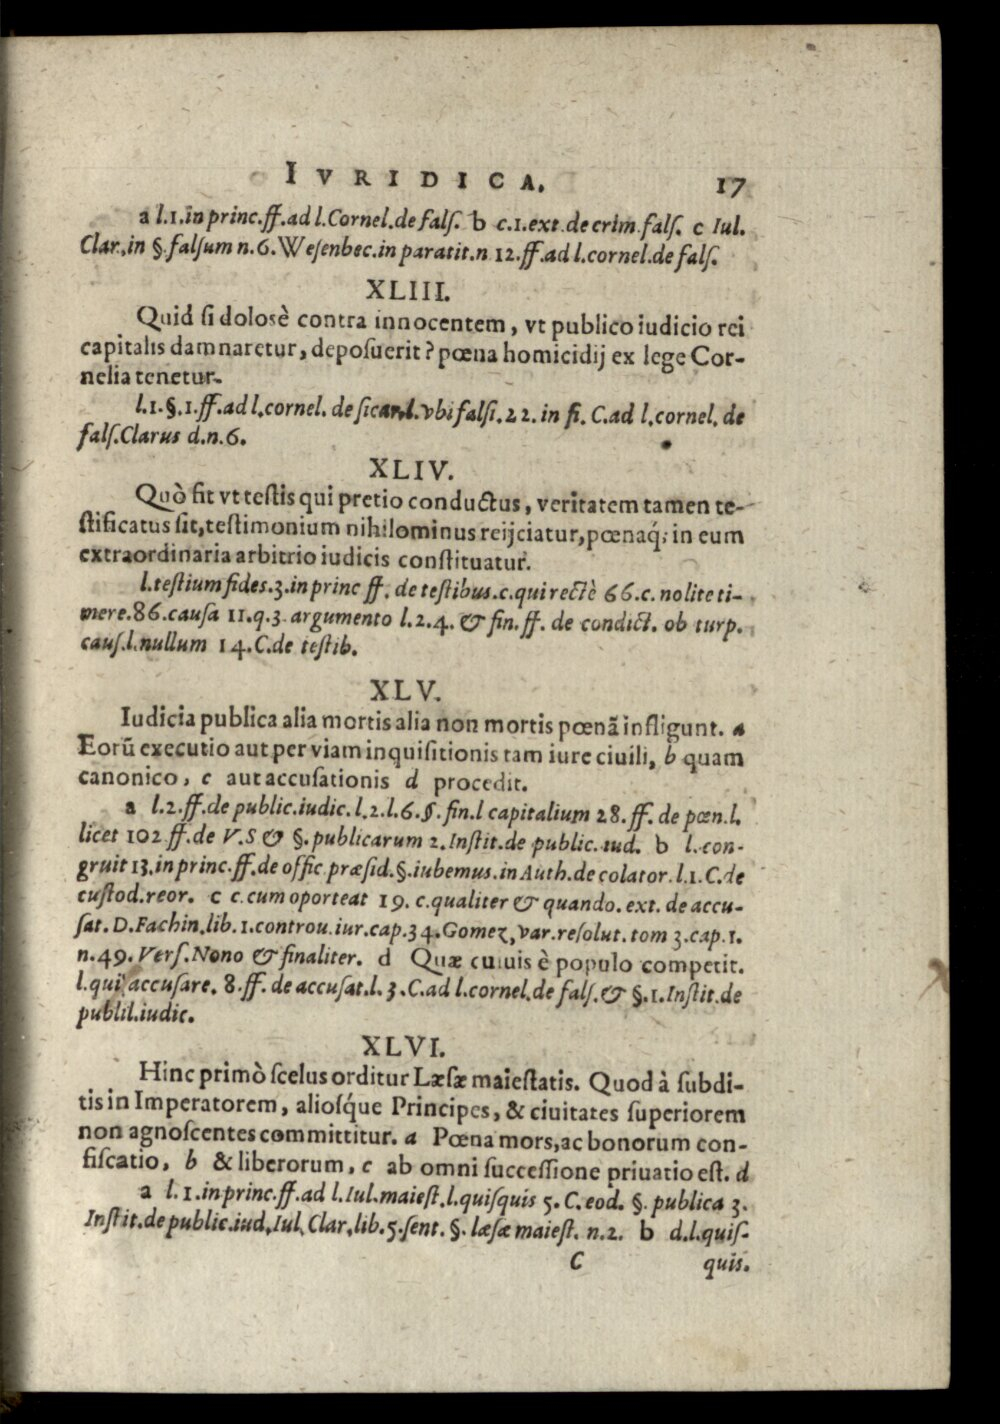 IVRIDICA. 17
a l.1.in princ.ff.ad l.Cornel.de falſ. b c.1.ext.de crim.falſ. c Iul.
Clar.in §.falſum n.6.Weſenbec.in paratit.n 12.ff.ad l.cornel.de falſ.
XLIII.
Quid ſi dolosè contra innocentem, vt publico iudicio rei
capitalis damnaretur, depoſuerit? pœna homicidij ex lege Cor-
nelia tenetur.
l.1.§.1.ff.ad l.cornel. de ſicar.l.vbi falſi.22. in fi. C.ad l.cornel. de
falſ.Clarus d.n.6.
XLIV.
Quò fit vt teſtis qui pretio conductus, veritatem tamen te-
ſtificatus ſit, teſtimonium nihilominus reijciatur, pœnaq́; in eum
extraordinaria arbitrio iudicis conſtituatur.
l.teſtium fides.3.in princ ff. de teſtibus.c.qui rectè 66.c. nolite ti-
mere.86.cauſa 11.q.3. argumento l.2.4. & fin.ff. de condict. ob turp.
cauſ.l.nullum 14.C.de teſtib.
XLV.
Iudicia publica alia mortis alia non mortis pœnã infligunt. a
Eorũ executio aut per viam inquiſitionis tam iure ciuili, b quam
canonico, c aut accuſationis d procedit.
a l.2.ff.de public.iudic.l.2.l.6.§.fin.l capitalium 28.ff. de pœn.l.
licet 102.ff.de V.S & §.publicarum 2.Inſtit.de public.iud. b l.con-
gruit 13.in princ.ff.de offic.præſid.§.iubemus.in Auth.de colator.l.1.C.de
cuſtod.reor. c c.cum oporteat 19. c.qualiter & quando. ext. de accu-
ſat.D.Fachin.lib.1.controu.iur.cap.34.Gomez,var.reſolut.tom 3.cap.1.
n.49.Verſ.Nono & finaliter. d Quæ cuiuis è populo competit.
l.qui accuſare. 8.ff. de accuſat.l.3.C.ad l.cornel.de falſ.& §.1.Inſtit.de
publil.iudic.
XLVI.
Hinc primò ſcelus orditur Læſæ maieſtatis. Quod à ſubdi-
tis in Imperatorem, alioſq́ue Principes, & ciuitates ſuperiorem
non agnoſcentes committitur. a Pœna mors, ac bonorum con-
fiſcatio, b & liberorum, c ab omni ſucceſſione priuatio eſt. d
a l.1.in princ.ff.ad l.Iul.maieſt.l.quiſquis 5.C.eod. §.publica 3.
Inſtit.de public.iud.Iul.Clar.lib.5.ſent. §. læſæ maieſt. n.2. b d.l.quiſ-
C quis.